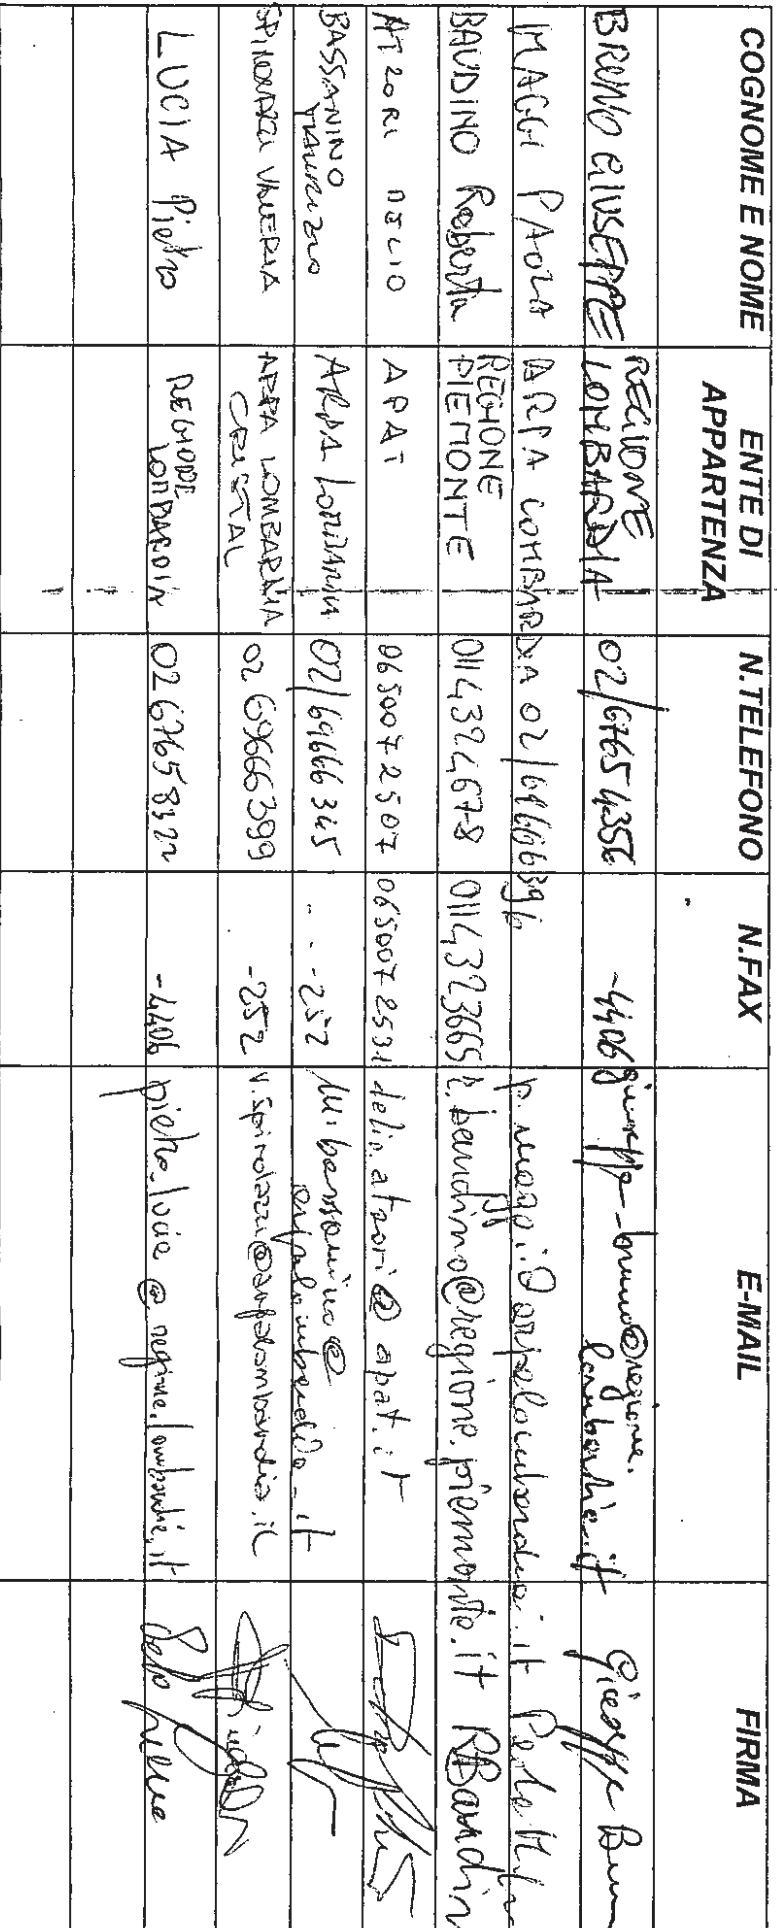 COGNOME E NOME ENTE DI APPARTENZA N.TELEFONO N.FAX E-MAIL FIRMA
BRUNO GIUSEPPE REGIONE LOMBARDIA 02/67654356 -4406 giuseppe-bruno@regione.lombardia.it Giuseppe Bruno
MAGGI PAOLA ARPA LOMBARDIA 02/69666396 p.maggi@arpalombardia.it
BAUDINO Roberta REGIONE PIEMONTE 0114324678 0114323665 r.baudino@regione.piemonte.it RBaudin
ATZORI DELIO APAT 0650072507 0650072531 delio.atzori@apat.it
BASSANINO MAURIZIO ARPA LOMBARDIA 02/69666345 ..-252 m.bassanino@arpalombardia.it
SPINOLAZZI VALERIA ARPA LOMBARDIA 02 69666399 -252
LUCIA Pietro REGIONE LOMBARDIA 0267658322 -4406 pietro_lucia@regione.lombardia.it